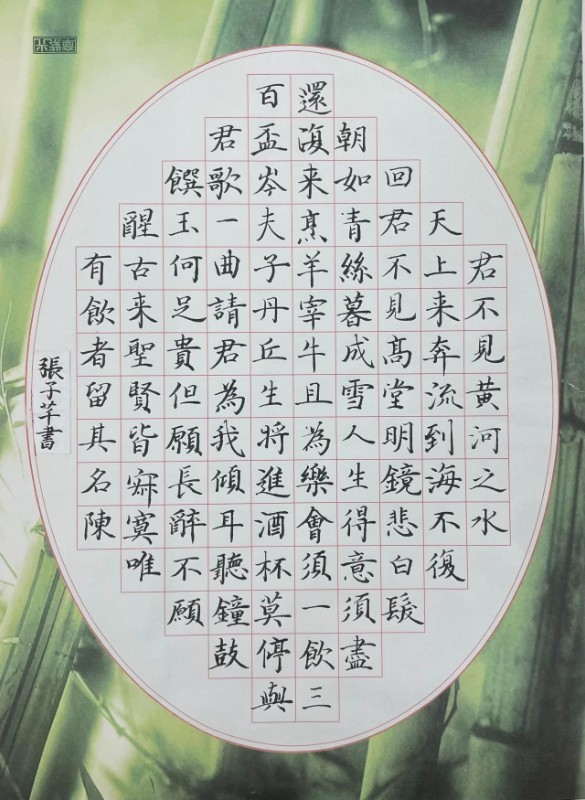 君不見黃河之水
天上来奔流到海不復
回君不見髙堂明鏡悲白髮
朝如青絲暮成雪人生得意須盡
還復来烹羊宰牛且為樂會須一飲三
百盃岑夫子丹丘生將進酒杯莫停與
君歌一曲請君為我傾耳聽鐘鼓
饌玉何足貴但願長醉不願
醒古来聖賢皆寂寞唯
有飲者留其名陳
張子芊書